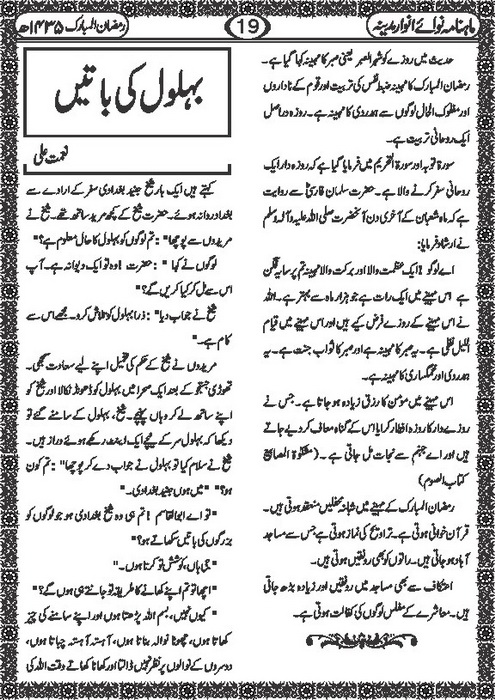 ماہنامہ نوائے انوارِ مدینہ
19
رمضان المبارک ۱۴۳۵ھ
حدیث میں روزے کو شہر الصبر یعنی صبر کا مہینہ کہا گیا ہے۔
رمضان المبارک کا مہینہ ضبطِ نفس کی تربیت اور قوم کے ناداروں
اور مفلوک الحال لوگوں سے ہمدردی کا مہینہ ہے۔ روزہ دراصل
ایک روحانی تربیت ہے۔
سورۃ توبہ اور سورۃ التحریم میں فرمایا گیا ہے کہ روزہ دار ایک
روحانی سفر کرنے والا ہے۔ حضرت سلمان فارسیؓ سے روایت
ہے کہ ماہ شعبان کے آخری دن آنحضرت صلی اللہ علیہ وآلہ وسلم
نے ارشاد فرمایا:
اے لوگو! ایک عظمت والا اور برکت والا مہینہ تم پر سایہ فگن
ہے اس مہینے میں ایک رات ہے جو ہزار ماہ سے بہتر ہے۔ اللہ
نے اس مہینے کے روزے فرض کیے ہیں اور اس مہینے میں قیام
اللیل نفلی ہے۔ یہ صبر کا مہینہ ہے اور صبر کا ثواب جنت ہے۔ یہ
ہمدردی اور غمگساری کا مہینہ ہے۔
اس مہینے میں مومن کا رزق زیادہ ہو جاتا ہے۔ جس نے
روزے دار کا روزہ افطار کرایا اس کے گناہ معاف کر دیے جاتے
ہیں اور اسے جہنم سے نجات مل جاتی ہے۔ (مشکوٰۃ المصابیح
کتاب الصوم)
رمضان المبارک کے مہینے میں شبانہ محفلیں منعقد ہوتی ہیں۔
قرآن خوانی ہوتی ہے۔ تراویح کی نماز ہوتی ہے جس سے مساجد
آباد ہو جاتی ہیں۔ راتوں کو بھی رونقیں ہوتی ہیں۔
اعتکاف سے بھی مساجد میں رونقیں اور زیادہ بڑھ جاتی
ہیں۔ معاشرے کے مفلس لوگوں کی کفالت ہوتی ہے۔
بہلول کی باتیں
نعمت علی
کہتے ہیں ایک بار شیخ جنید بغدادی سفر کے ارادے سے
بغداد روانہ ہوئے۔ حضرت شیخ کے کچھ مرید ساتھ تھے۔ شیخ نے
مریدوں سے پوچھا: "تم لوگوں کو بہلول کا حال معلوم ہے؟"
لوگوں نے کہا: "حضرت! وہ تو ایک دیوانہ ہے۔ آپ
اس سے مل کر کیا کریں گے؟"
شیخ نے جواب دیا: "ذرا بہلول کو تلاش کرو۔ مجھے اس سے
کام ہے۔"
مریدوں نے شیخ کے حکم کی تعمیل اپنے لیے سعادت سمجھی۔
تھوڑی جستجو کے بعد ایک صحرا میں بہلول کو ڈھونڈ نکالا اور شیخ کو
اپنے ساتھ لے کر وہاں پہنچے۔ شیخ، بہلول کے سامنے گئے تو
دیکھا کہ بہلول سر کے نیچے ایک اینٹ رکھے ہوئے دراز ہیں۔
شیخ نے سلام کیا تو بہلول نے جواب دے کر پوچھا: "تم کون
ہو؟" "میں ہوں جنید بغدادی۔"
"تو اے ابوالقاسم! تم ہی وہ شیخ بغدادی ہو جو لوگوں کو
بزرگوں کی باتیں سکھاتے ہو؟"
"جی ہاں، کوشش تو کرتا ہوں۔"
"اچھا تو تم اپنے کھانے کا طریقہ تو جانتے ہی ہوں گے؟"
"کیوں نہیں، بسم اللہ پڑھتا ہوں اور اپنے سامنے کی چیز
کھاتا ہوں، چھوٹا نوالہ بناتا ہوں، آہستہ آہستہ چباتا ہوں،
دوسروں کے نوالوں پر نظر نہیں ڈالتا اور کھانا کھاتے وقت اللہ کی